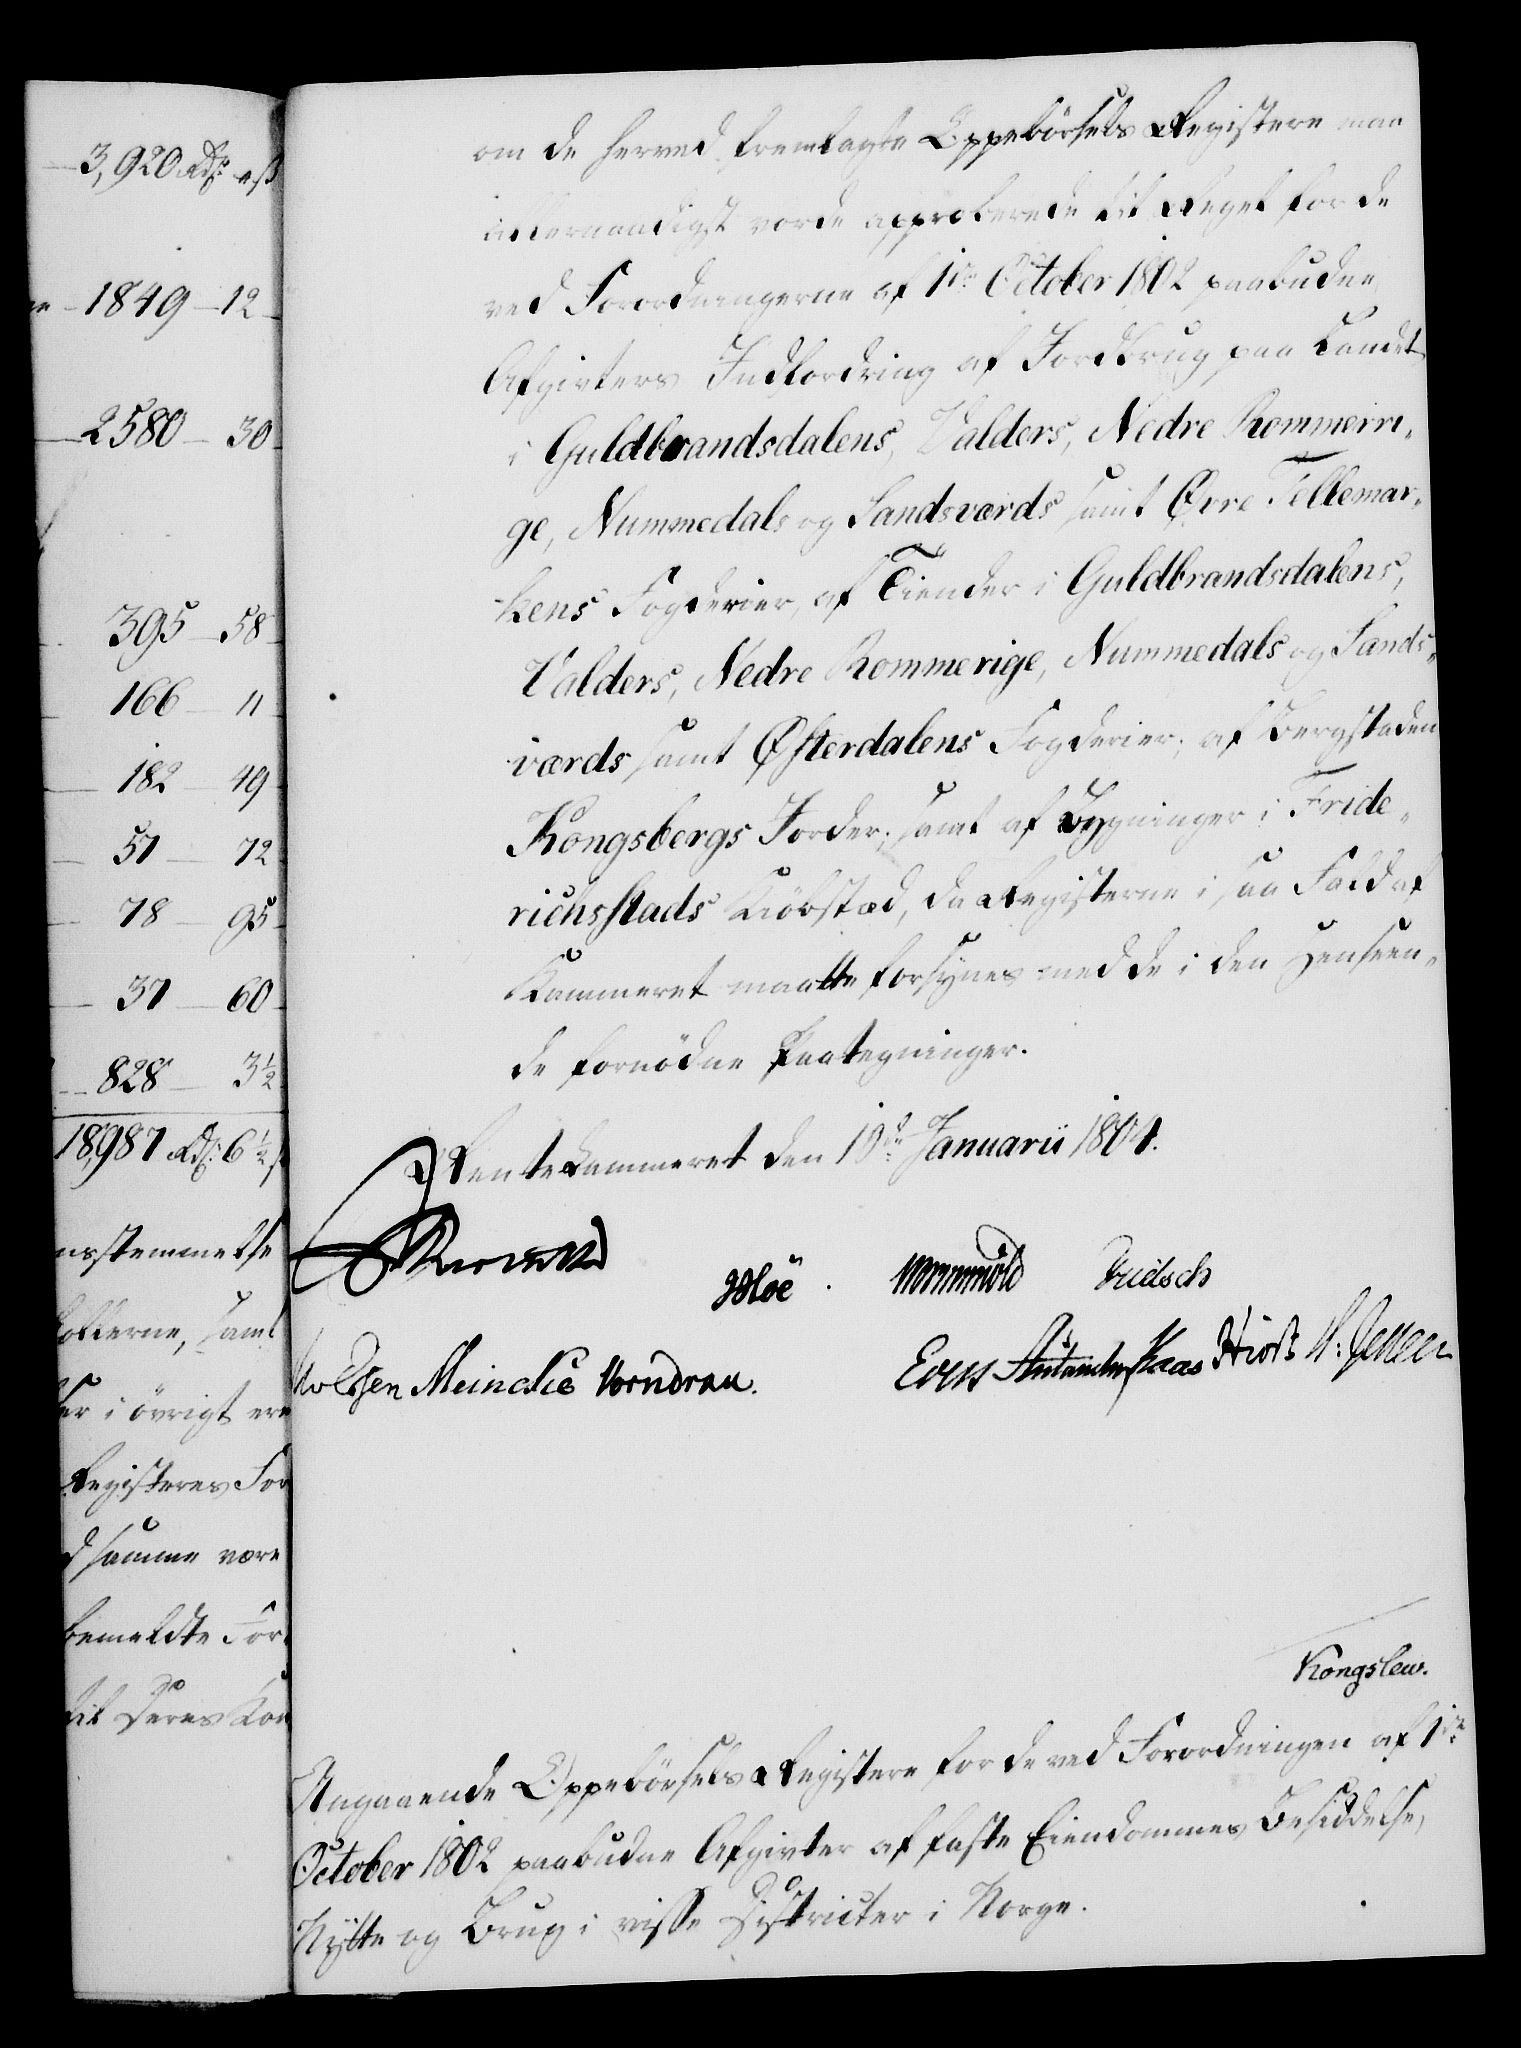 3,920 Rdr. " ß
1849 - 12
2580 - 30
395 - 58
166 - 11
182 - 49
51 - 72
78 - 95
37 - 60
828 - 3½
18,987 Rdr. 6½ ß
nsstemmelse
samt
er i övrigt ere
Registeres For
d samme være
bemeldte For
til Deres Kon
om de herved fremlagte Oppebörsels Registere maa
allernaadigst vorde approberede til Regel for de
ved Forordningerne af 1ste October 1802 paabudne
Afgivters Indfordring af Jordbrug paa Landet
i Guldbrandsdalens, Valders, Nedre Rommerri„
ge, Nummedals og Sandsværds samt Øvre Tellemar„
kens Fogderier, af Tiender i Guldbrandsdalens,
Valders, Nedre Rommerige, Nummedals og Sands„
værds samt Østerdalens Fogderier; af Bergstaden
Kongsbergs Jorder; samt af Bygninger i Fride„
richsstads Kiöbstæd, da Registerne i saa Fald af
Kammeret maatte forsynes med de i den Henseen„
de fornödne Paategninger.
Rentekammeret den 10de Januarii 1804.
Wormskiold
Meincke Vorndran.
Kaas
Kongslew.
Angaaende Oppebörsels Registere for de ved Forordningen af 1ste
October 1802 paabudne Afgivter af faste Eiendommes Besiddelse,
Nytte og Brug i visse Districter i Norge.